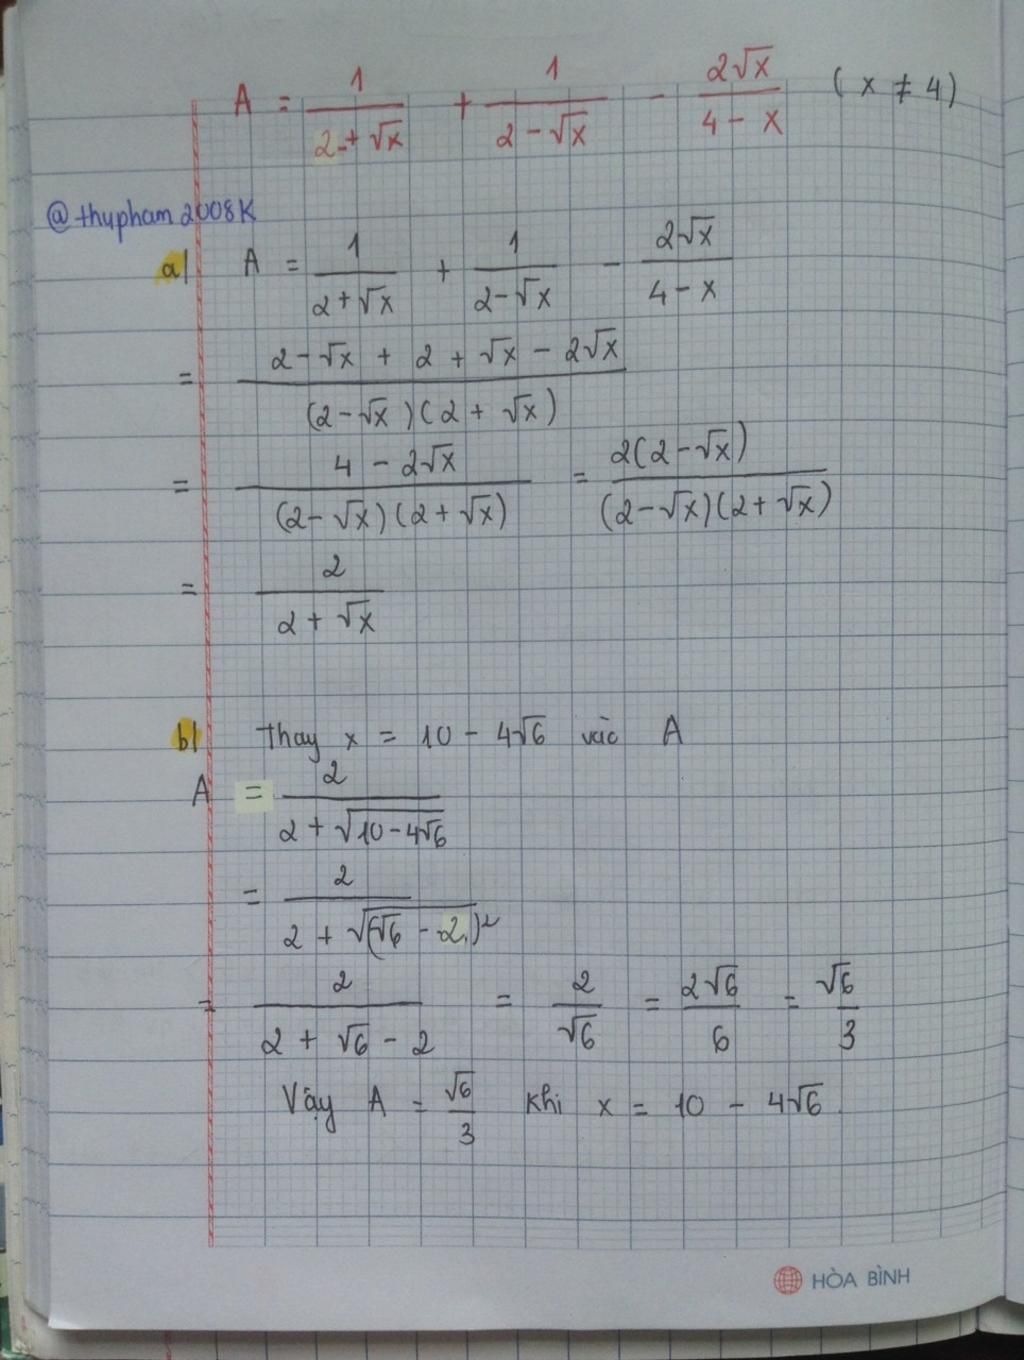 A = 1/(2 + √x) + 1/(2 - √x) - 2√x/(4 - x) ( x ≠ 4)
@thupham2008K
a/ A = 1/(2 + √x) + 1/(2 - √x) - 2√x/(4 - x)
= (2 - √x + 2 + √x - 2√x)/((2 - √x)(2 + √x))
= (4 - 2√x)/((2 - √x)(2 + √x)) = 2(2 - √x)/((2 - √x)(2 + √x))
= 2/(2 + √x)
b/ Thay x = 10 - 4√6 vào A
A = 2/(2 + √(10 - 4√6))
= 2/(2 + √(√6 - 2)²)
= 2/(2 + √6 - 2) = 2/√6 = 2√6/6 = √6/3
Vậy A = √6/3 khi x = 10 - 4√6.
HÒA BÌNH